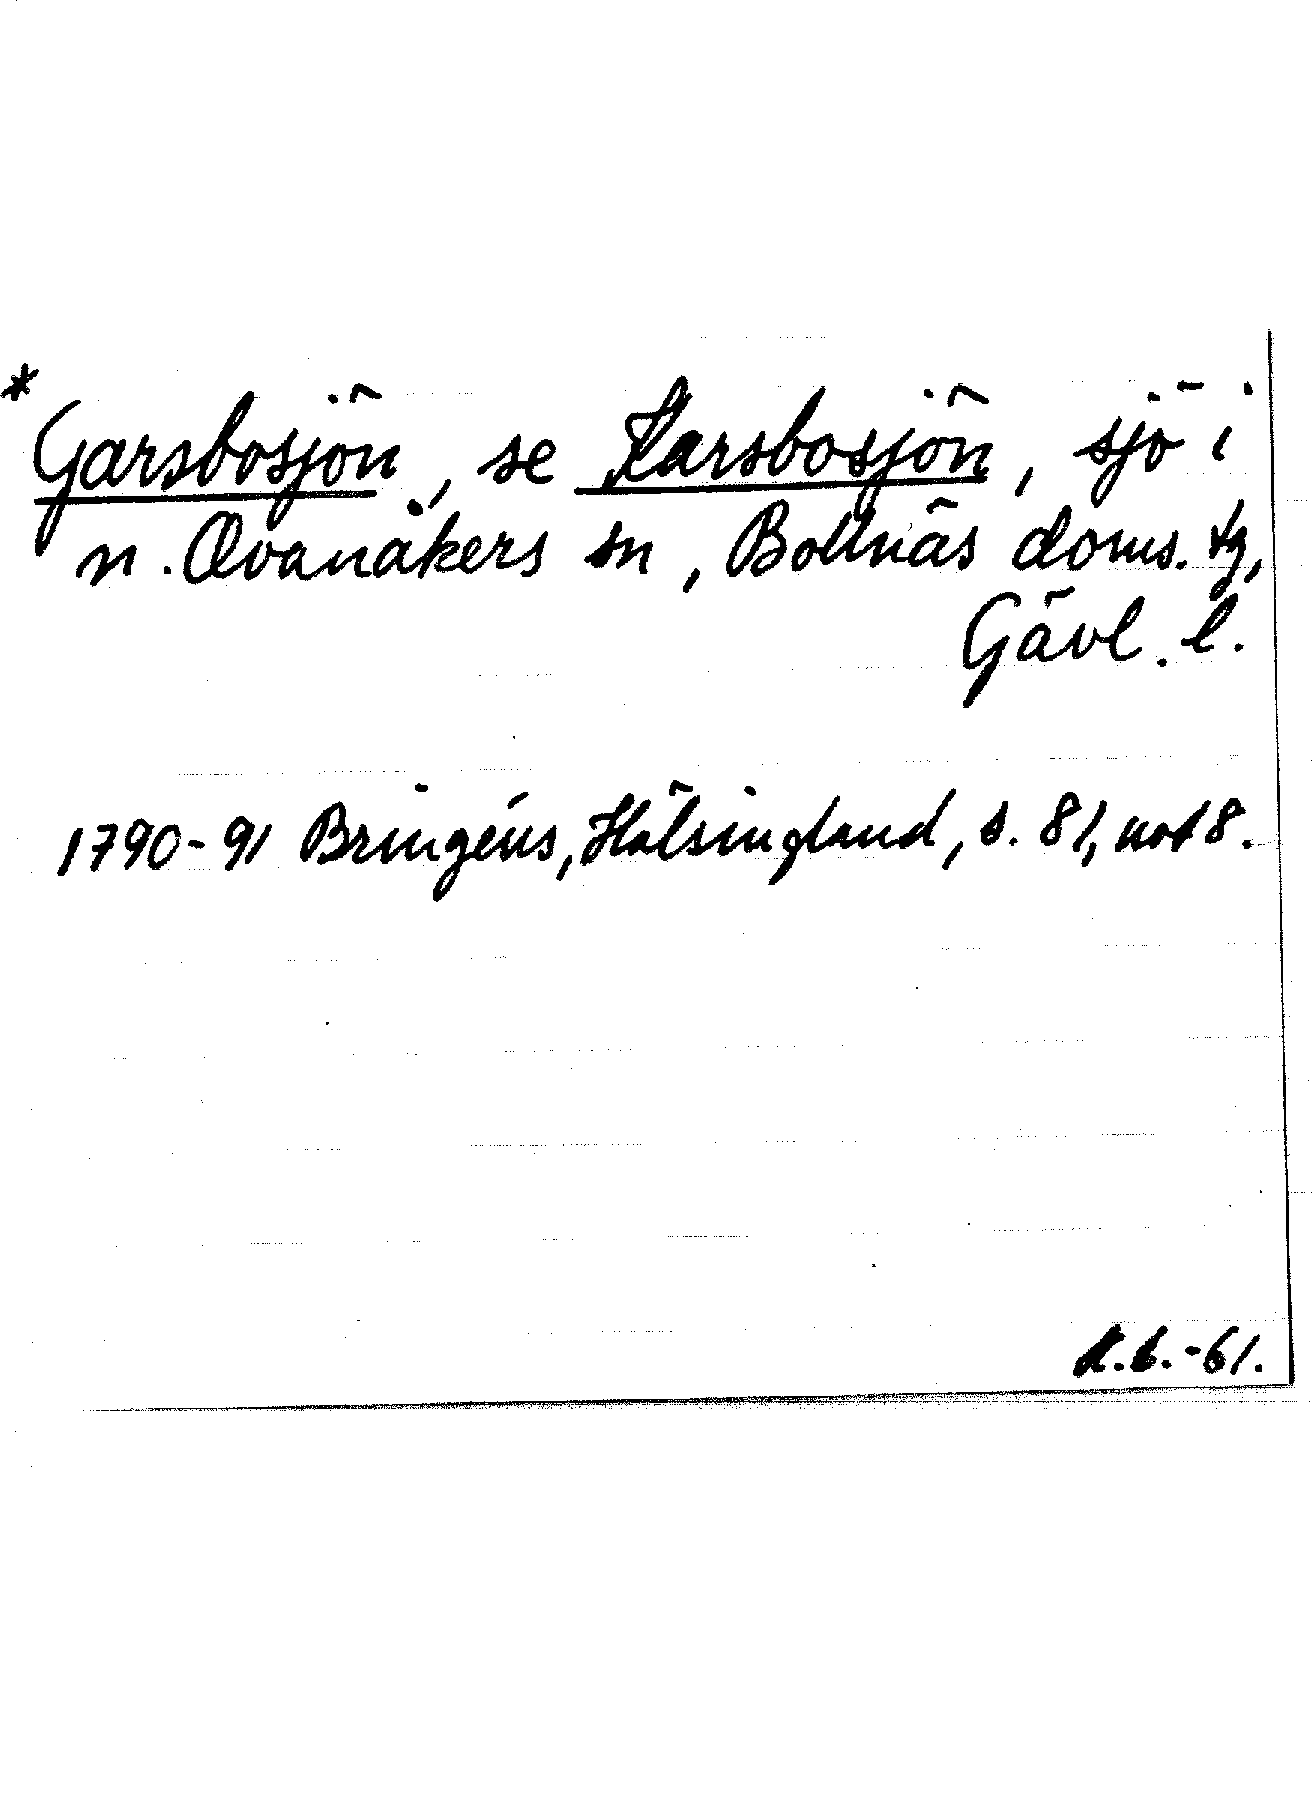 * Garsbosjön, se Karsbosjön, sjö i
n. Ovanåkers sn, Bollnäs doms. tg,
Gävl. l.
1790-91 Bringéus, Hälsingland, s. 81, not 8.
K.G.-61.